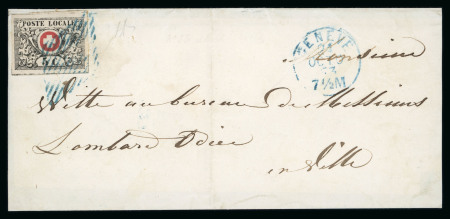 POSTE LOCALE
5 C.
GENÈVE
7½M
Monsieur
Witte au bureau de Messieurs
Lombard Odier
en Ville